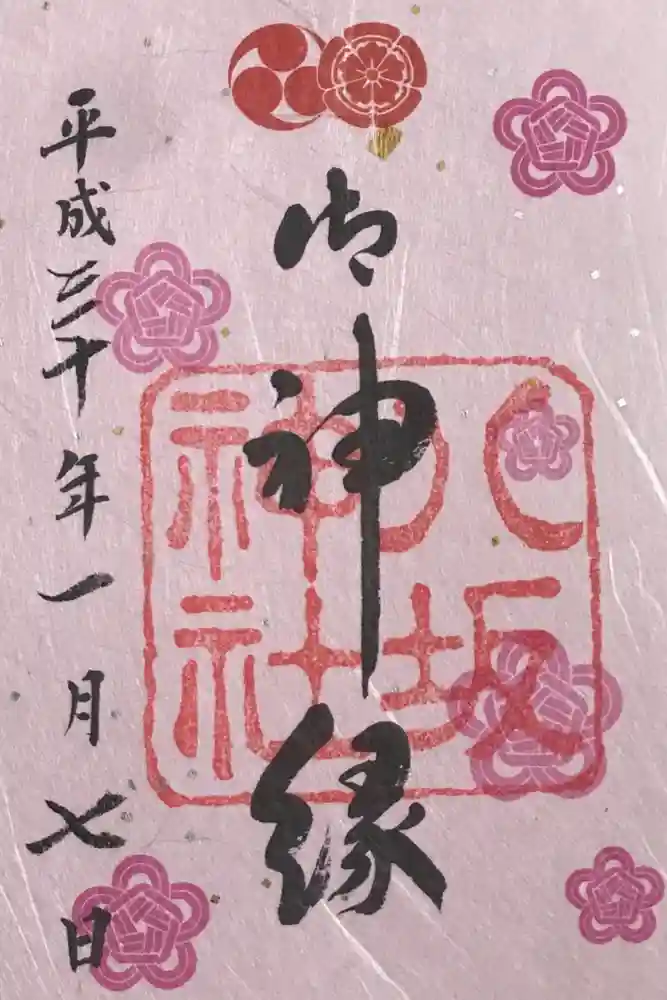 御神縁
八坂
神社
平成三十年一月七日